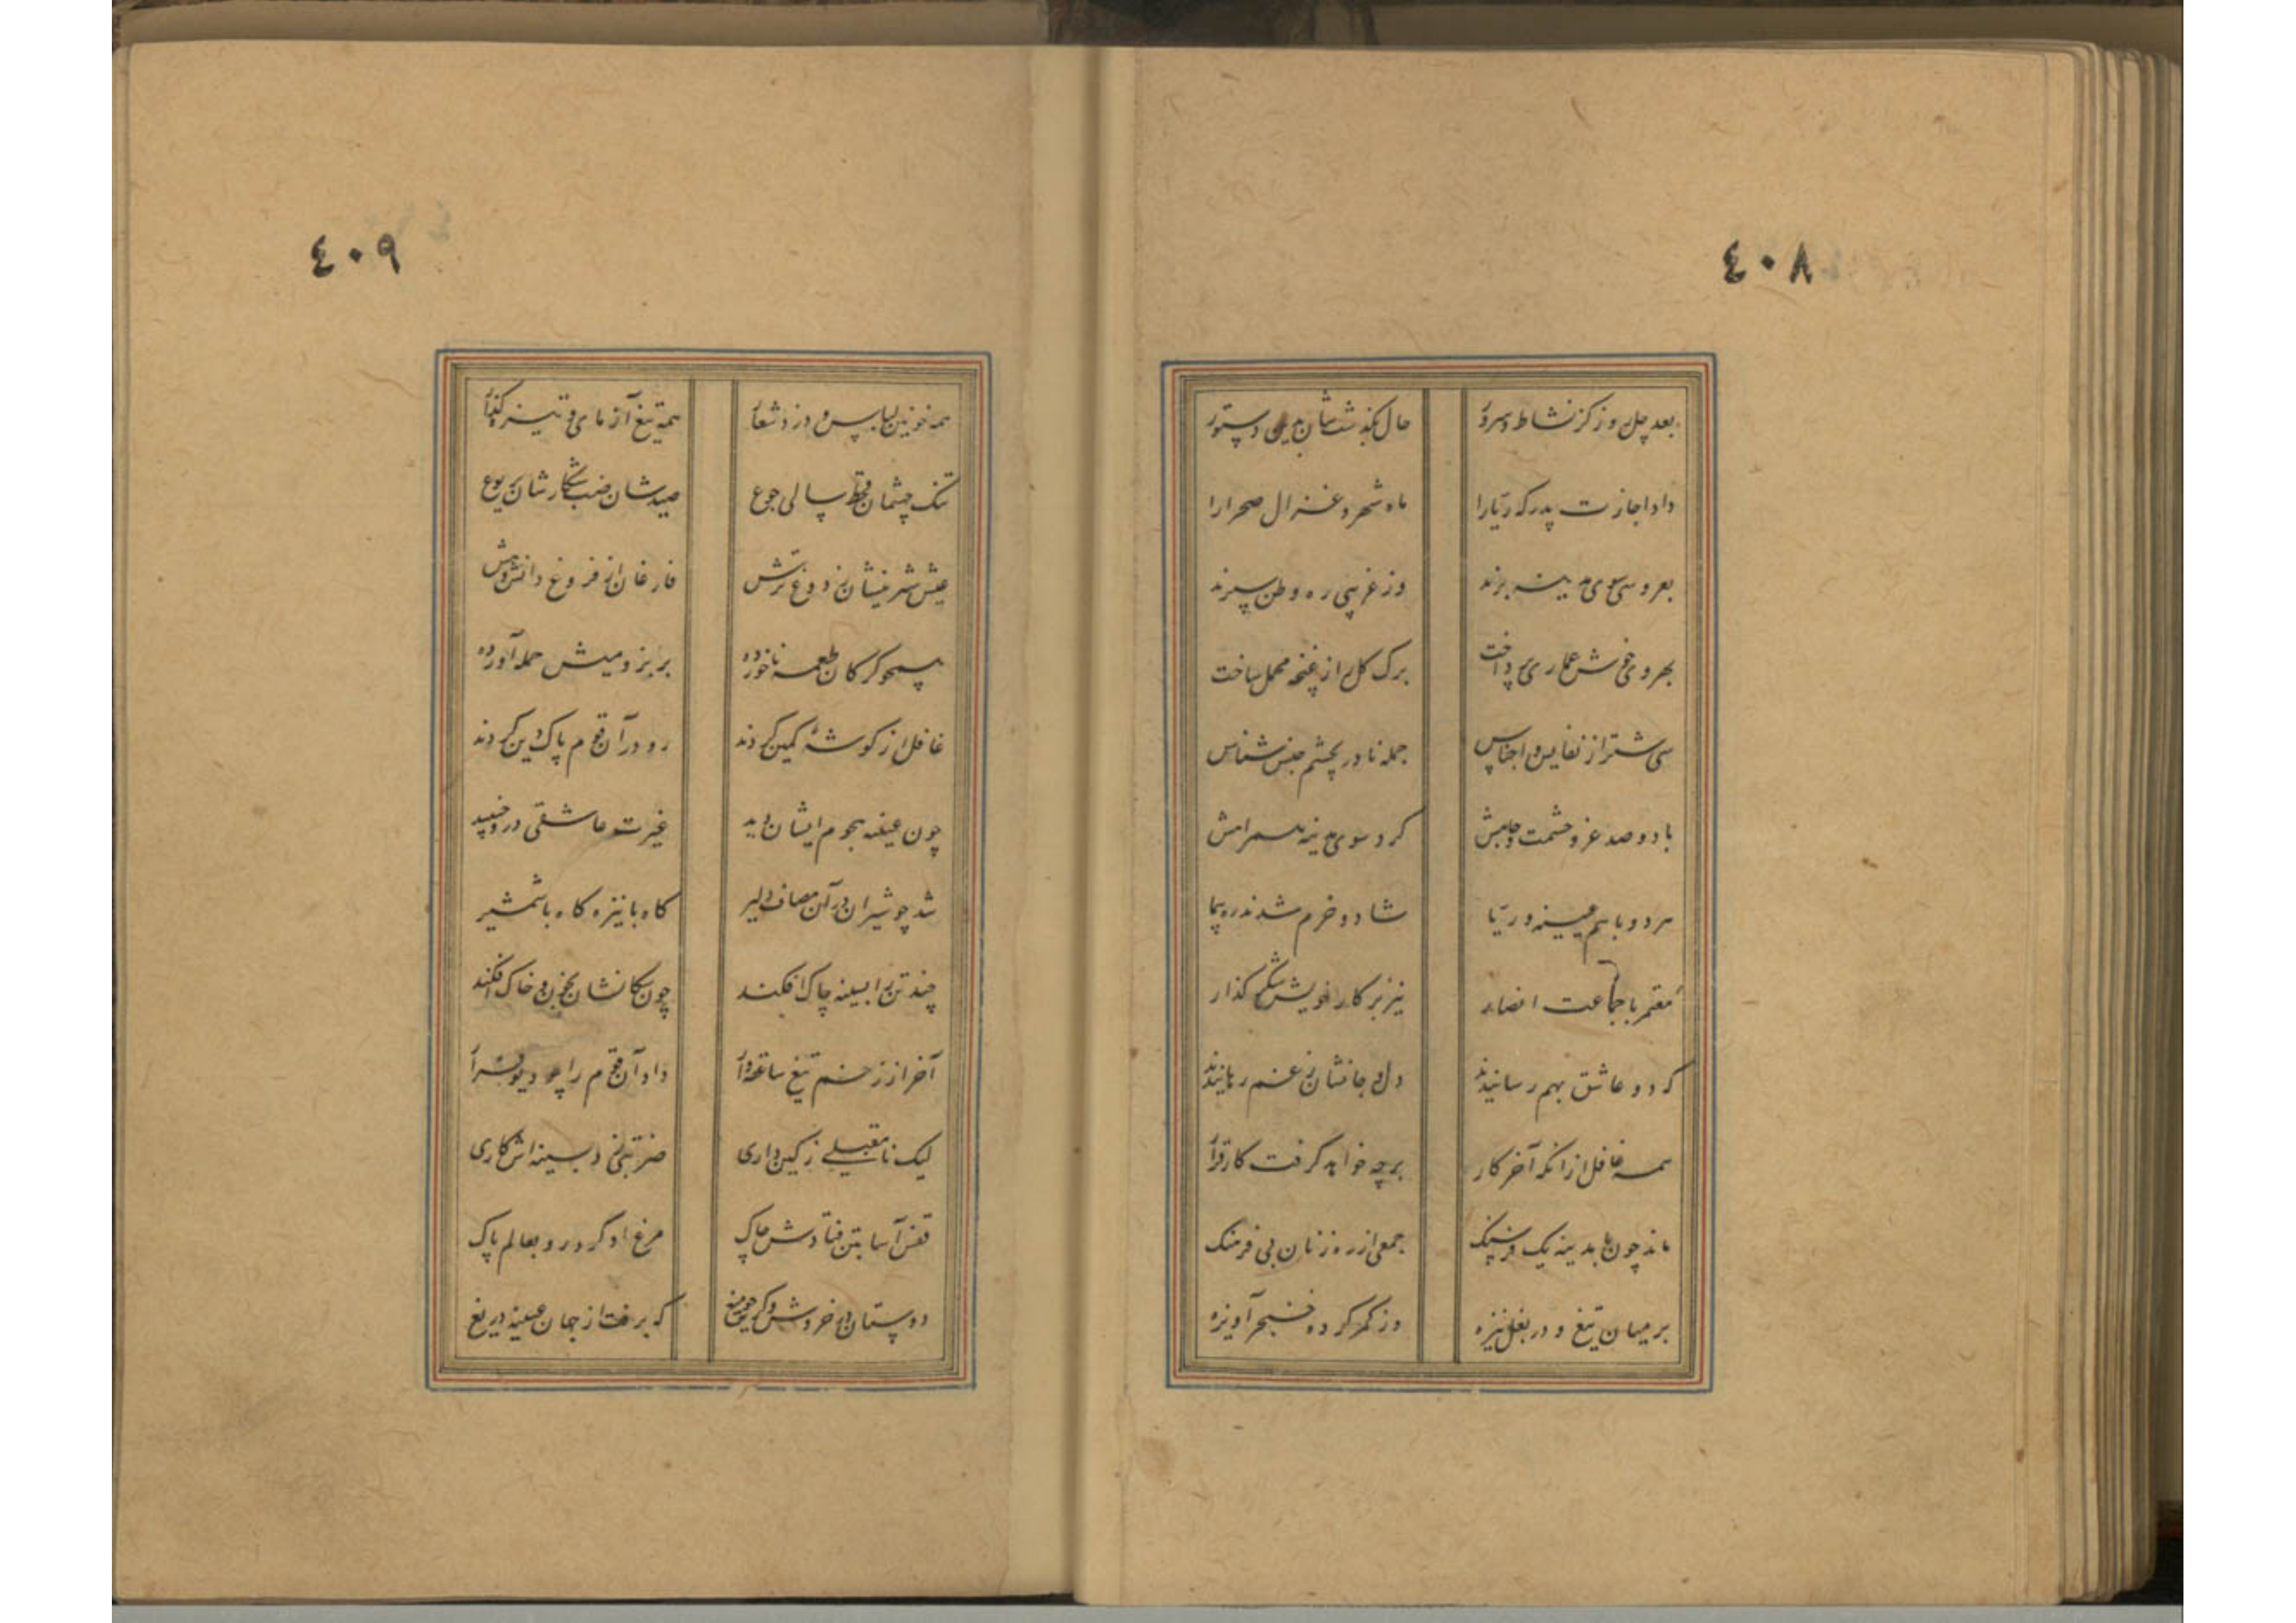 ٤٠٨
بعد چل روز کز نشاط و سرور
حال بگذشتشان بدین دستور
داد اجازت پدر که ریا را
ماه شهر و غزال صحرا را
بعروسی سوی مدینه برند
وز غریبی ره وطن سپرند
بهر وی خوش عماری پرداخت
برک کل را ز غنچه محمل ساخت
سی شتر از نفایس اجناس
جمله نادر بچشم جنس شناس
با دو صد عز و حشمت و جیش
کرد سوی مدینه
هر دو با هم عیینه و ریا
شاد و خرم شدند ره پیما
معتمر با جماعت انصار
نیز بر کار خویش شکر کذار
که دو عاشق بهم رسانیدند
دل و جانشان ز غم رهانیدند
همه غافل ازانکه آخر کار
بر چه خواهد کرفت کار قرار
ماند چون تا مدینه یک فرسنک
جمعی از ره زنان بی فرهنک
بر میان تیغ و در بغل نیزه
وز کمر کرده خنجر آویزه
٤٠٩
همه خونین لباس و دزد شعار
همه تیغ آزمای و نیزه کذار
تنک چشمان قحط سالی جوع
صیدشان ضب شکارشان یربوع
عیش شیرینشان ز دوغ ترش
فارغان از فروغ دانش و هش
همچو کرکان طعمه ناخورده
بر بز و میش حمله آورده
غافل از کوشه کمین کردند
رو در آن قوم پاک دین کردند
چون عیینه هجوم ایشان دید
غیرت عاشقی درو جنبید
شد چو شیران در آن مصاف دلیر
کاه با نیزه کاه با شمشیر
چند تن را بسینه چاک افکند
چون سکانشان بخون و خاک افکند
آخر از زخم تیغ صاعقه وار
داد آن قوم را چو دیو فرار
لیک نامقبلی ز کین داری
ضربتی زد بسینه اش کاری
قفس آسا بتن فتادش چاک
مرغ او کرد رو بعالم پاک
دوستان در خروش و کریه
که برفت از جهان عیینه دریغ